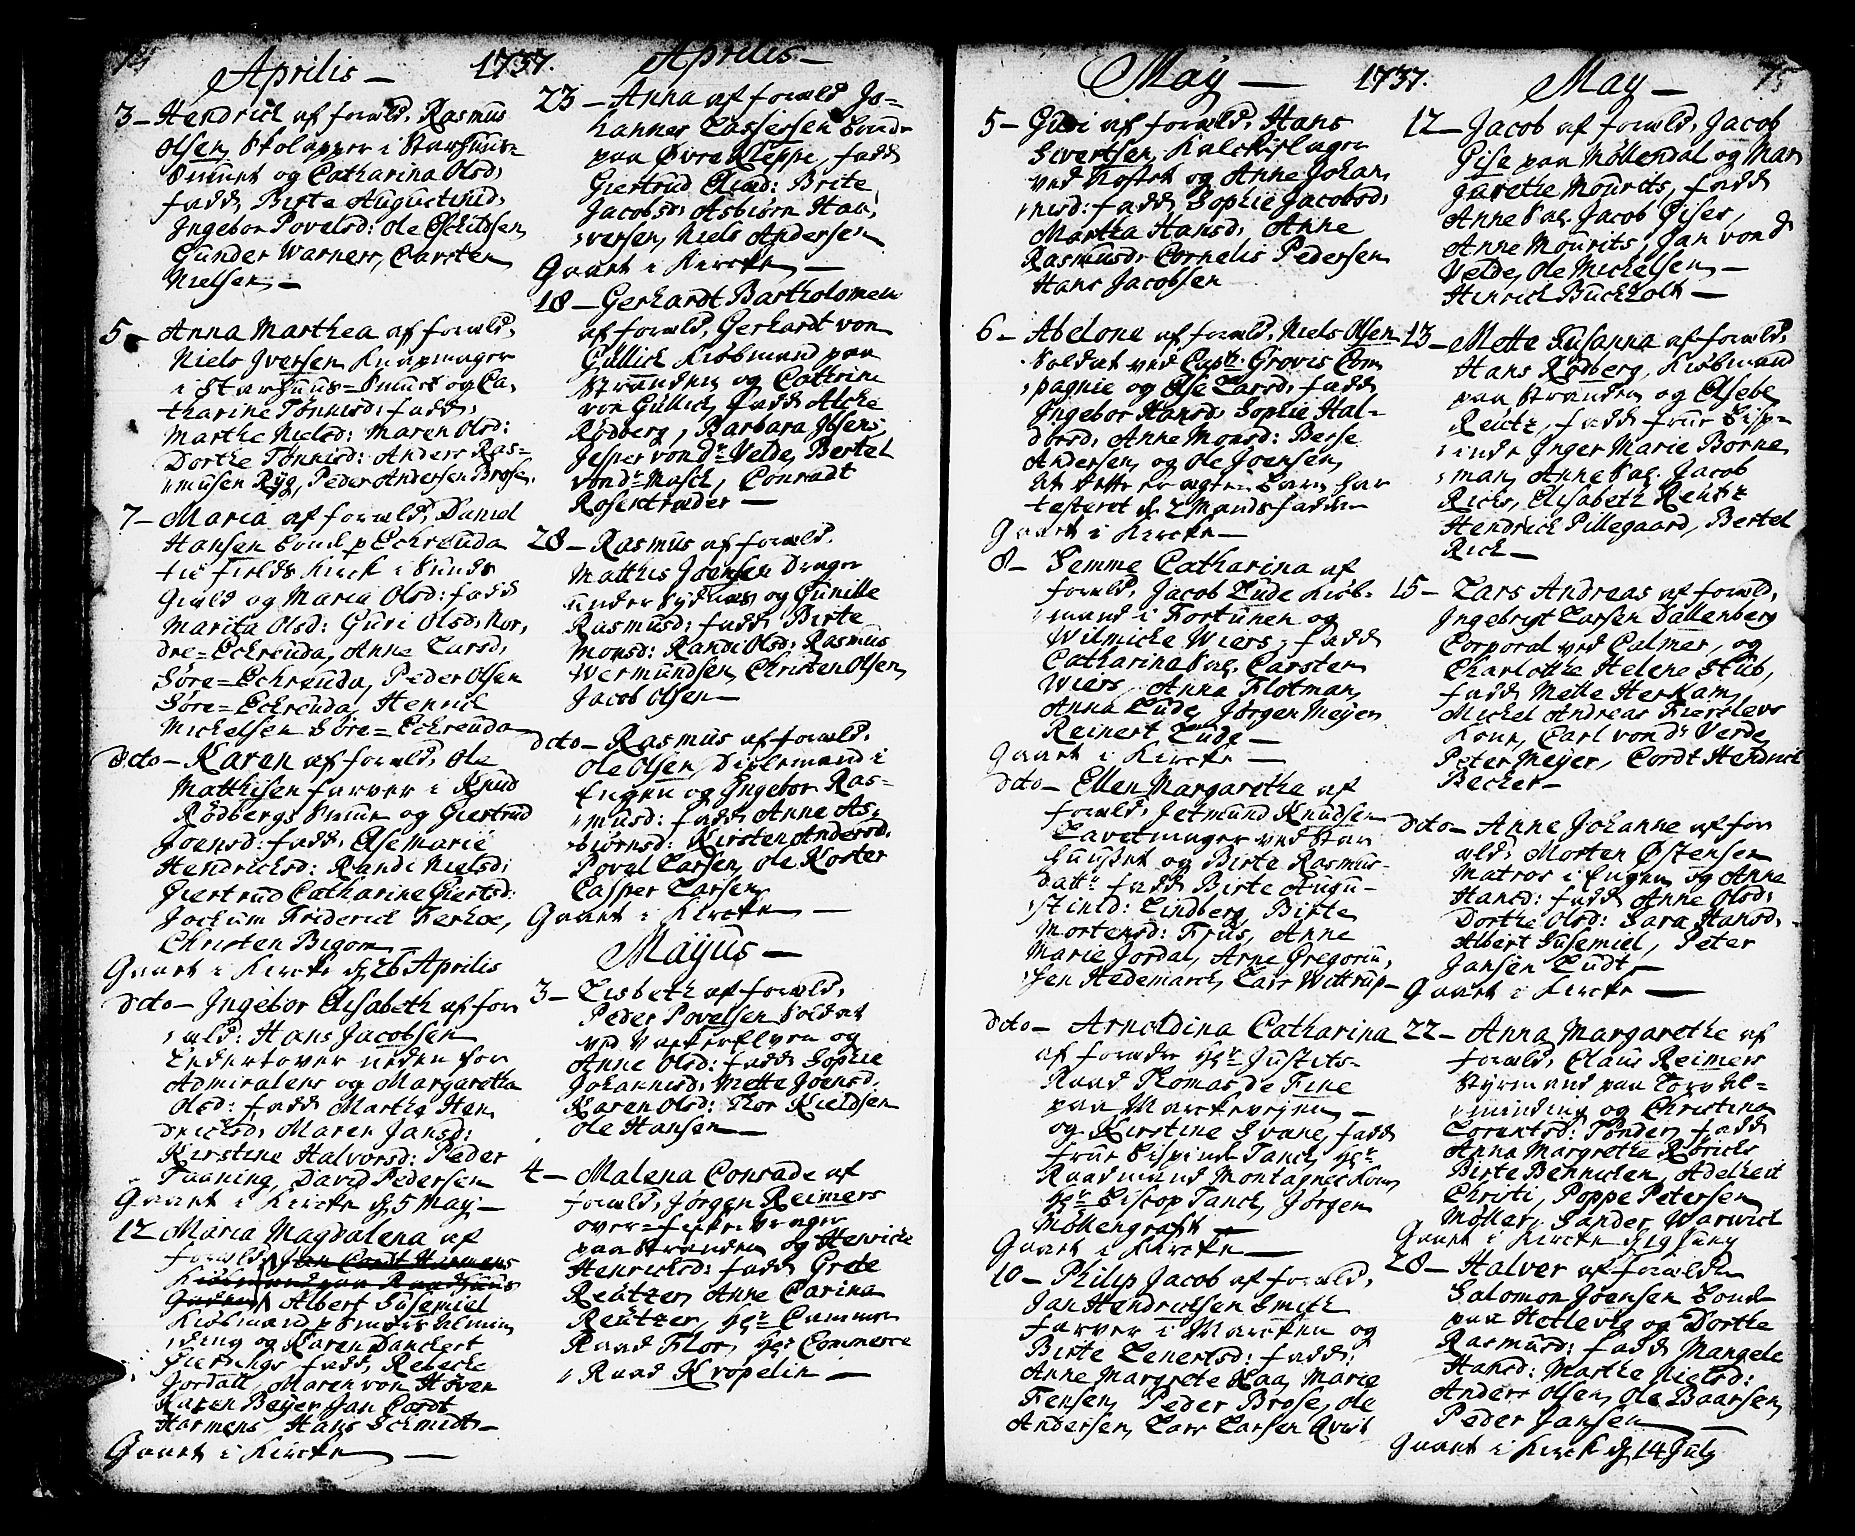 74
Aprilis — 1737.
3 – Hendrich af foræld. Rasmus
Olsen, Skolapper i Starhuus=
Smuuet og Catharina Olsd:
fadd. Birte Augustind:
Ingebor Povelsd: Ole Eschildsen,
Gunder Warners, Carsten
Nielsen, —
5 – Anna Marthea af foræld.
Niels Iversen Knapmager
i Starhuus=Smuet og Ca,
tharine Tønnisd: fadd.
Marthe Nielsd: Maren Olsd:
Dorthe Tønnisd: Anders Ras=
musen Ryg, Peder Andersen Brose.
7 – Maria af foræld. Daniel
Hansen bonde p Echreuda
til fields Kirck i Sunds
Giæld og Maria Olsd: fadd
Marita Olsd: Guri Olsd: Nor,
dre=Echreuda, Anne Larsd:
Søre=Echreuda, Peder Olsen
Søre=Echreuda, Henrich
Michelsen Søre=Echreuda
Dito – Karen af foræld. Ole
Matthisen farver i Knud
Rødbergs Smuur og Giertrud
Joensd: fadd. Else Marie
Hendrichsd: Randi Nielsd:
Giertrud Catharine Giertsd:
Jochum Friderich Ferhoe,
Christen Bigom —
Gaaet i Kircke d. 26 Aprilis
Dito – Ingebor Elisabeth af for
æld: Hans Jacobsen
neden for
Admiralens og Margaretha
Olsd: fadd Marthe Hen
drichsd: Maren Jansd:
Kirstine Halvorsd: Peder
Faaning, David Pedersen
Gaaet i Kircke d. 5 May —
12 Maria Magdalena af
foræld. Jan Cordt Harmens
Kiøbmand paa Raadhuus
Albert Susemiel
Kiøbmand p Smørs Almin
ding og Karen Danckert
Giernings fadd. Rebecke
Jordatt, Maren von Høven
Karen Beyer Jan Cordt
Harmens Hans Schmidt —
Gaaet i Kircke —
Aprilis —
23 – Anna af foræld Jo=
hannes Lassersen bonde
paa Øvre Kleppe, fadd
Giertrud Elend: Brite
Jacobsd: Asbiørn Hal,
versen, Niels Andersen
Gaaet i Kircke —
18 – Gerhardt Bartholomeu
af foræld. Gerhardt von
Gullich Kiøbmand paa
Stranden og Cathrine
von Gullich, fadd Alche
Rødberg, Barbara Ibsens,
Jesper von dr Velde, Bertel
von dr Masch, Conradt
Rosentræder —
28 – Rasmus af foræld.
Matthis Joensen Drager
under Sydnæs og Gunille
Rasmusd: fadd Birte
Monsd: Randi Olsd: Rasmus
Wermundsen, Christen Olsen,
Jacob Olsen —
Dito – Rasmus af foræld.
Ole Olsen, i
Engen og Ingebor Ras=
musd: fadd Anne As,
biørnsd: Kirsten Andersd:
Povel Larsen, Ole Koster
Casper Larsen,
Gaaet i Kircke —
Mayus —
3 – Lisbeth af foræld.
Peder Povelsen Soldat
ved og
Anne Olsd: fadd Sophie
Johannisd: Mette Joensd.
Karen Olsd: Thor Kieldsen
Ole Hansen —
4 – Malena Conrade af
foræld. Jørgen Reimers
over=ficke vrager
paa Stranden og Henricke
Henrichsd: fadd. Grete
Reutzer, Anne Carina
Reutzer, Hr: Cammer
Raad Flor, Hr: Commerce
Raad Kröpelin —
75
May — 1737.
5 – Guri af foræld. Hans
Sivertsen, Kalckslager
ved Kostet og Anne Johan,
nisd: fadd. Sophie Jacobsd,
Martha Hansd: Anne
Rasmusd: Cornelis Pedersen
Hans Jacobsen
6 – Abelone af foræld. Niels Olsen
Soldat ved Capt: Grovis Com,
pagnie og Else Larsd: fadd
Ingebor Hansd: Sophie Hal=
dorsd: Anne Monsd: Berse
Andersen, og Ole Joensen,
at dette er ægte barn har
testeret de 2 Mands faddere
Gaaet i Kircke —
8 – Semme Catharina af
foræld. Jacob Lude Kiøb=
mand i Fortunen og
Wilmicke Wiers; fadd
Catharina Sal. Carsten
Wiers, Anna Flotman,
Anna Lude, Jørgen Meyer
Reinert Lude —
Gaaet i Kircke —
Dito – Ellen Margarethe af
foræld. Jetmund Knudsen
Lavetmager ved Star
huuset og Birte Rasmus=
datt: fadd Birte Augu=
stinsd: Lindberg, Birte
Mortensd: Friis, Anne
Marie Jordal, Arne Gregoriu,
sen Hedemarch, Lars Wittrup —
Dito – Arnoldina Catharina
af forældre Hr: Justits=
Raad Thomas De Fine
paa Marckevejen —
og Kirstine Svane, fadd
Frue Bispinde Tanch, Hr:
Raadmand Montagnes Kone,
Hr: Biscop Tanch, Jørgen
Møllengraft —
Gaaet i Kircke —
10 – Philip Jacob af foræld.
Jan Hendrichsen Smith
farver i Marcken og
Birte Lenertsd: fadd:
Anne Margrete Kaa, Marie
Jensen, Peder Brose, Ole
Andersen, Lars Larsen Qvist
May —
12 – Jacob af foræld. Jacob
Gise paa Møllendal og Mar,
garethe Mourits, fadd
Anne Sal. Jacob Gises,
Anne Mourits, Jan von d
Velde, Ole Michelsen, —
Hinrich Buchholt —
13 – Mette Susanna af foræld.
Hans Rødberg, Kiøbmand
paa Stranden og Elsebe
Reutz, fadd. Frue Bisp=
inde Inger Marie Borne
man, Anne Sal. Jacob
Richs, Elisabeth Reutz
Hendrich Pillegaard, Bertel
Rich —
15 – Lars Andreas af foræld.
Ingebrigt Larsen Dallenberg
Corporal ved Calmer, og
Charlotthe Helene Stub,
fadd. Mette Herkam,
Michel Andreas Fierslevs
Kone, Carl von dr Verde,
Peter Meyer, Cordt Hendrich
Becker —
Dito – Anne Johanne af for
æld. Morten Østensen
Matros i Engen og Anne
Hansd: fadd Anne Olsd:
Dorthe Olsd: Sara Hansd.
Albert Susemiel, Peter
Jansen Ludt —
Gaaet i Kircke —
22 – Anna Margarethe af
foræld. Claus Reimers
Styrmand paa Torv Al=
minding og Christina
Lorentsd: Tønder, fadd
Anna Margrethe Rørichs
Birte Bennichen, Adelheit
Christi, Poppe Petersen
Møller, Sander Warwich
Gaaet i Kircke d. 19 Juny
28 – Halver af forældre
Salomon Joensen bonde
paa Hetlevig og Dorthe
Rasmusd: fadd Mangele
Hansd: Marthe Nielsd:
Anders Olsen, Ole Baarsen,
Peder Jansen
Gaaet i Kirck d. 14 July